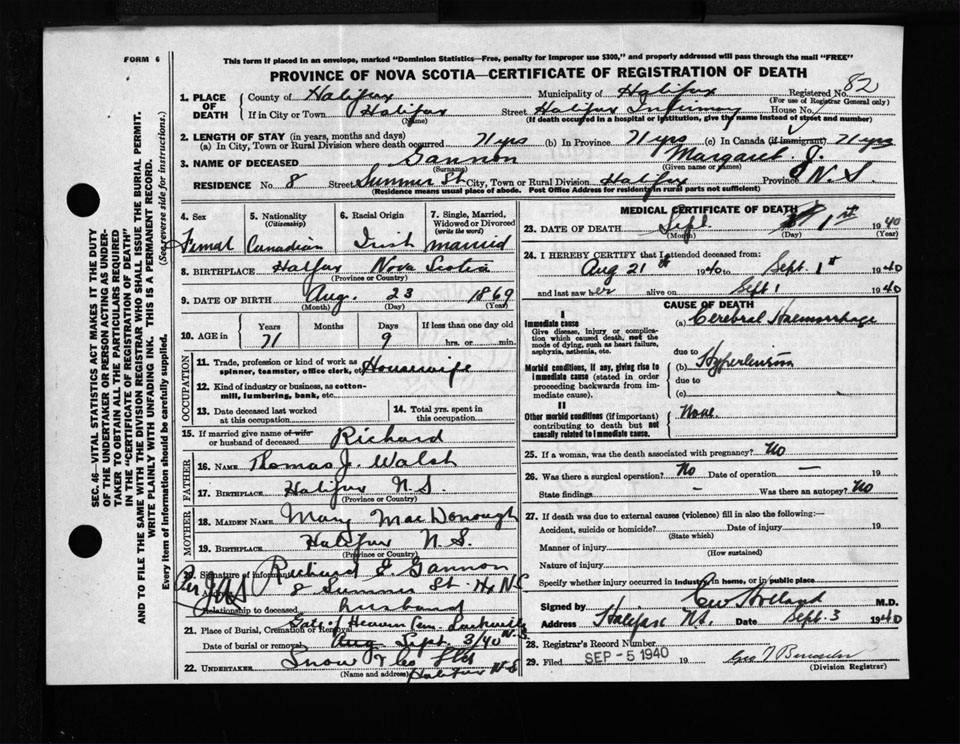 FORM 6
This form if placed in an envelope, marked "Dominion Statistics—Free, penalty for improper use $300," and properly addressed will pass through the mail "FREE"
PROVINCE OF NOVA SCOTIA—CERTIFICATE OF REGISTRATION OF DEATH
Registered No. 82
(For use of Registrar General only)
1. PLACE OF DEATH
County of Halifax Municipality of Halifax
If in City or Town Halifax Street Halifax Infirmary House No.
(Name) (If death occurred in a hospital or institution, give the name instead of street and number)
2. LENGTH OF STAY (in years, months and days)
(a) In City, Town or Rural Division where death occurred 71 yrs (b) In Province 71 yrs (c) In Canada (if immigrant) 71 yrs
3. NAME OF DECEASED Gannon Margaret J.
(Surname) (Given name or names)
RESIDENCE No. 8 Street Summer St City, Town or Rural Division Halifax Province N.S
(Residence means usual place of abode. Post Office Address for residents in rural parts not sufficient)
4. Sex Femal
5. Nationality (Citizenship) Canadian
6. Racial Origin Irish
7. Single, Married, Widowed or Divorced (write the word) married
8. BIRTHPLACE Halifax Nova Scotia
(Province or Country)
9. DATE OF BIRTH Aug. 23 1869
(Month) (Day) (Year)
10. AGE in Years 71 Months Days 9 If less than one day old hrs. or min.
OCCUPATION
11. Trade, profession or kind of work as spinner, teamster, office clerk, etc. Housewife
12. Kind of industry or business, as cotton-mill, lumbering, bank, etc.
13. Date deceased last worked at this occupation
14. Total yrs. spent in this occupation
15. If married give name of wife or husband of deceased Richard
FATHER
16. NAME Thomas J. Walsh
17. BIRTHPLACE Halifax N.S.
(Province or Country)
MOTHER
18. MAIDEN NAME Mary MacDonough
19. BIRTHPLACE Halifax N.S.
(Province or Country)
20. Signature of informant Richard E Gannon
Per
Address 8 Summer St. Hx N.S
Relationship to deceased husband
21. Place of Burial, Cremation or Removal Gate of Heaven Cem. Sackville N.S.
Date of burial or removal Aug Sept. 3/40
22. UNDERTAKER Snow & Co Ltd
(Name and address) Halifax N.S
MEDICAL CERTIFICATE OF DEATH
23. DATE OF DEATH Sept 1st 1940
(Month) (Day) (Year)
24. I HEREBY CERTIFY that I attended deceased from
Aug 21st 1940 to Sept. 1st 1940
and last saw her alive on Sept 1 1940
CAUSE OF DEATH
I
Immediate cause
Give disease, injury or complication which caused death, not the mode of dying, such as heart failure, asphyxia, asthenia, etc.
(a) Cerebral Haemorrhage
due to
Morbid conditions, if any, giving rise to immediate cause (stated in order proceeding backwards from immediate cause).
(b)
due to
(c)
II
Other morbid conditions (if important) contributing to death but not causally related to immediate cause.
None
25. If a woman, was the death associated with pregnancy? No
26. Was there a surgical operation? No Date of operation — 19
State findings — Was there an autopsy? No
27. If death was due to external causes (violence) fill in also the following:—
Accident, suicide or homicide? Date of injury 19
(State which)
Manner of injury
(How sustained)
Nature of injury
Specify whether injury occurred in industry, in home, or in public place
Signed by Holland M.D.
Address Halifax N.S. Date Sept. 3 1940
28. Registrar's Record Number
29. Filed SEP - 5 1940 19
(Division Registrar)
SEC. 46—VITAL STATISTICS ACT MAKES IT THE DUTY
OF THE UNDERTAKER OR PERSON ACTING AS UNDER-
TAKER TO OBTAIN ALL THE PARTICULARS REQUIRED
IN THE "CERTIFICATE OF REGISTRATION OF DEATH"
AND TO FILE THE SAME WITH THE DIVISION REGISTRAR WHO SHALL ISSUE THE BURIAL PERMIT.
WRITE PLAINLY WITH UNFADING INK. THIS IS A PERMANENT RECORD.
Every item of information should be carefully supplied. (See reverse side for instructions.)